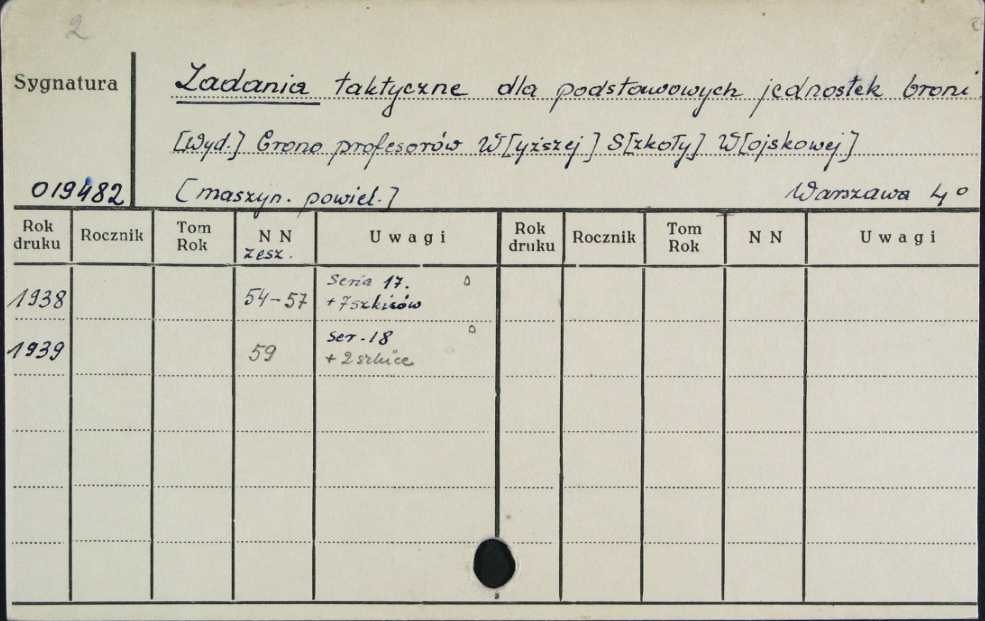 2
Sygnatura
Zadania taktyczne dla podstawowych jednostek broni
[Wyd.] Grono profesorów W[yższej] S[zkoły] W[ojskowej]
019482
[maszyn. powiel.] Warszawa 4°
Rok druku Rocznik Tom Rok NN zesz. Uwagi Rok druku Rocznik Tom Rok NN Uwagi
1938 54-57 Seria 17. + 7 szkiców
1939 59 Ser. 18 + 2 szkice